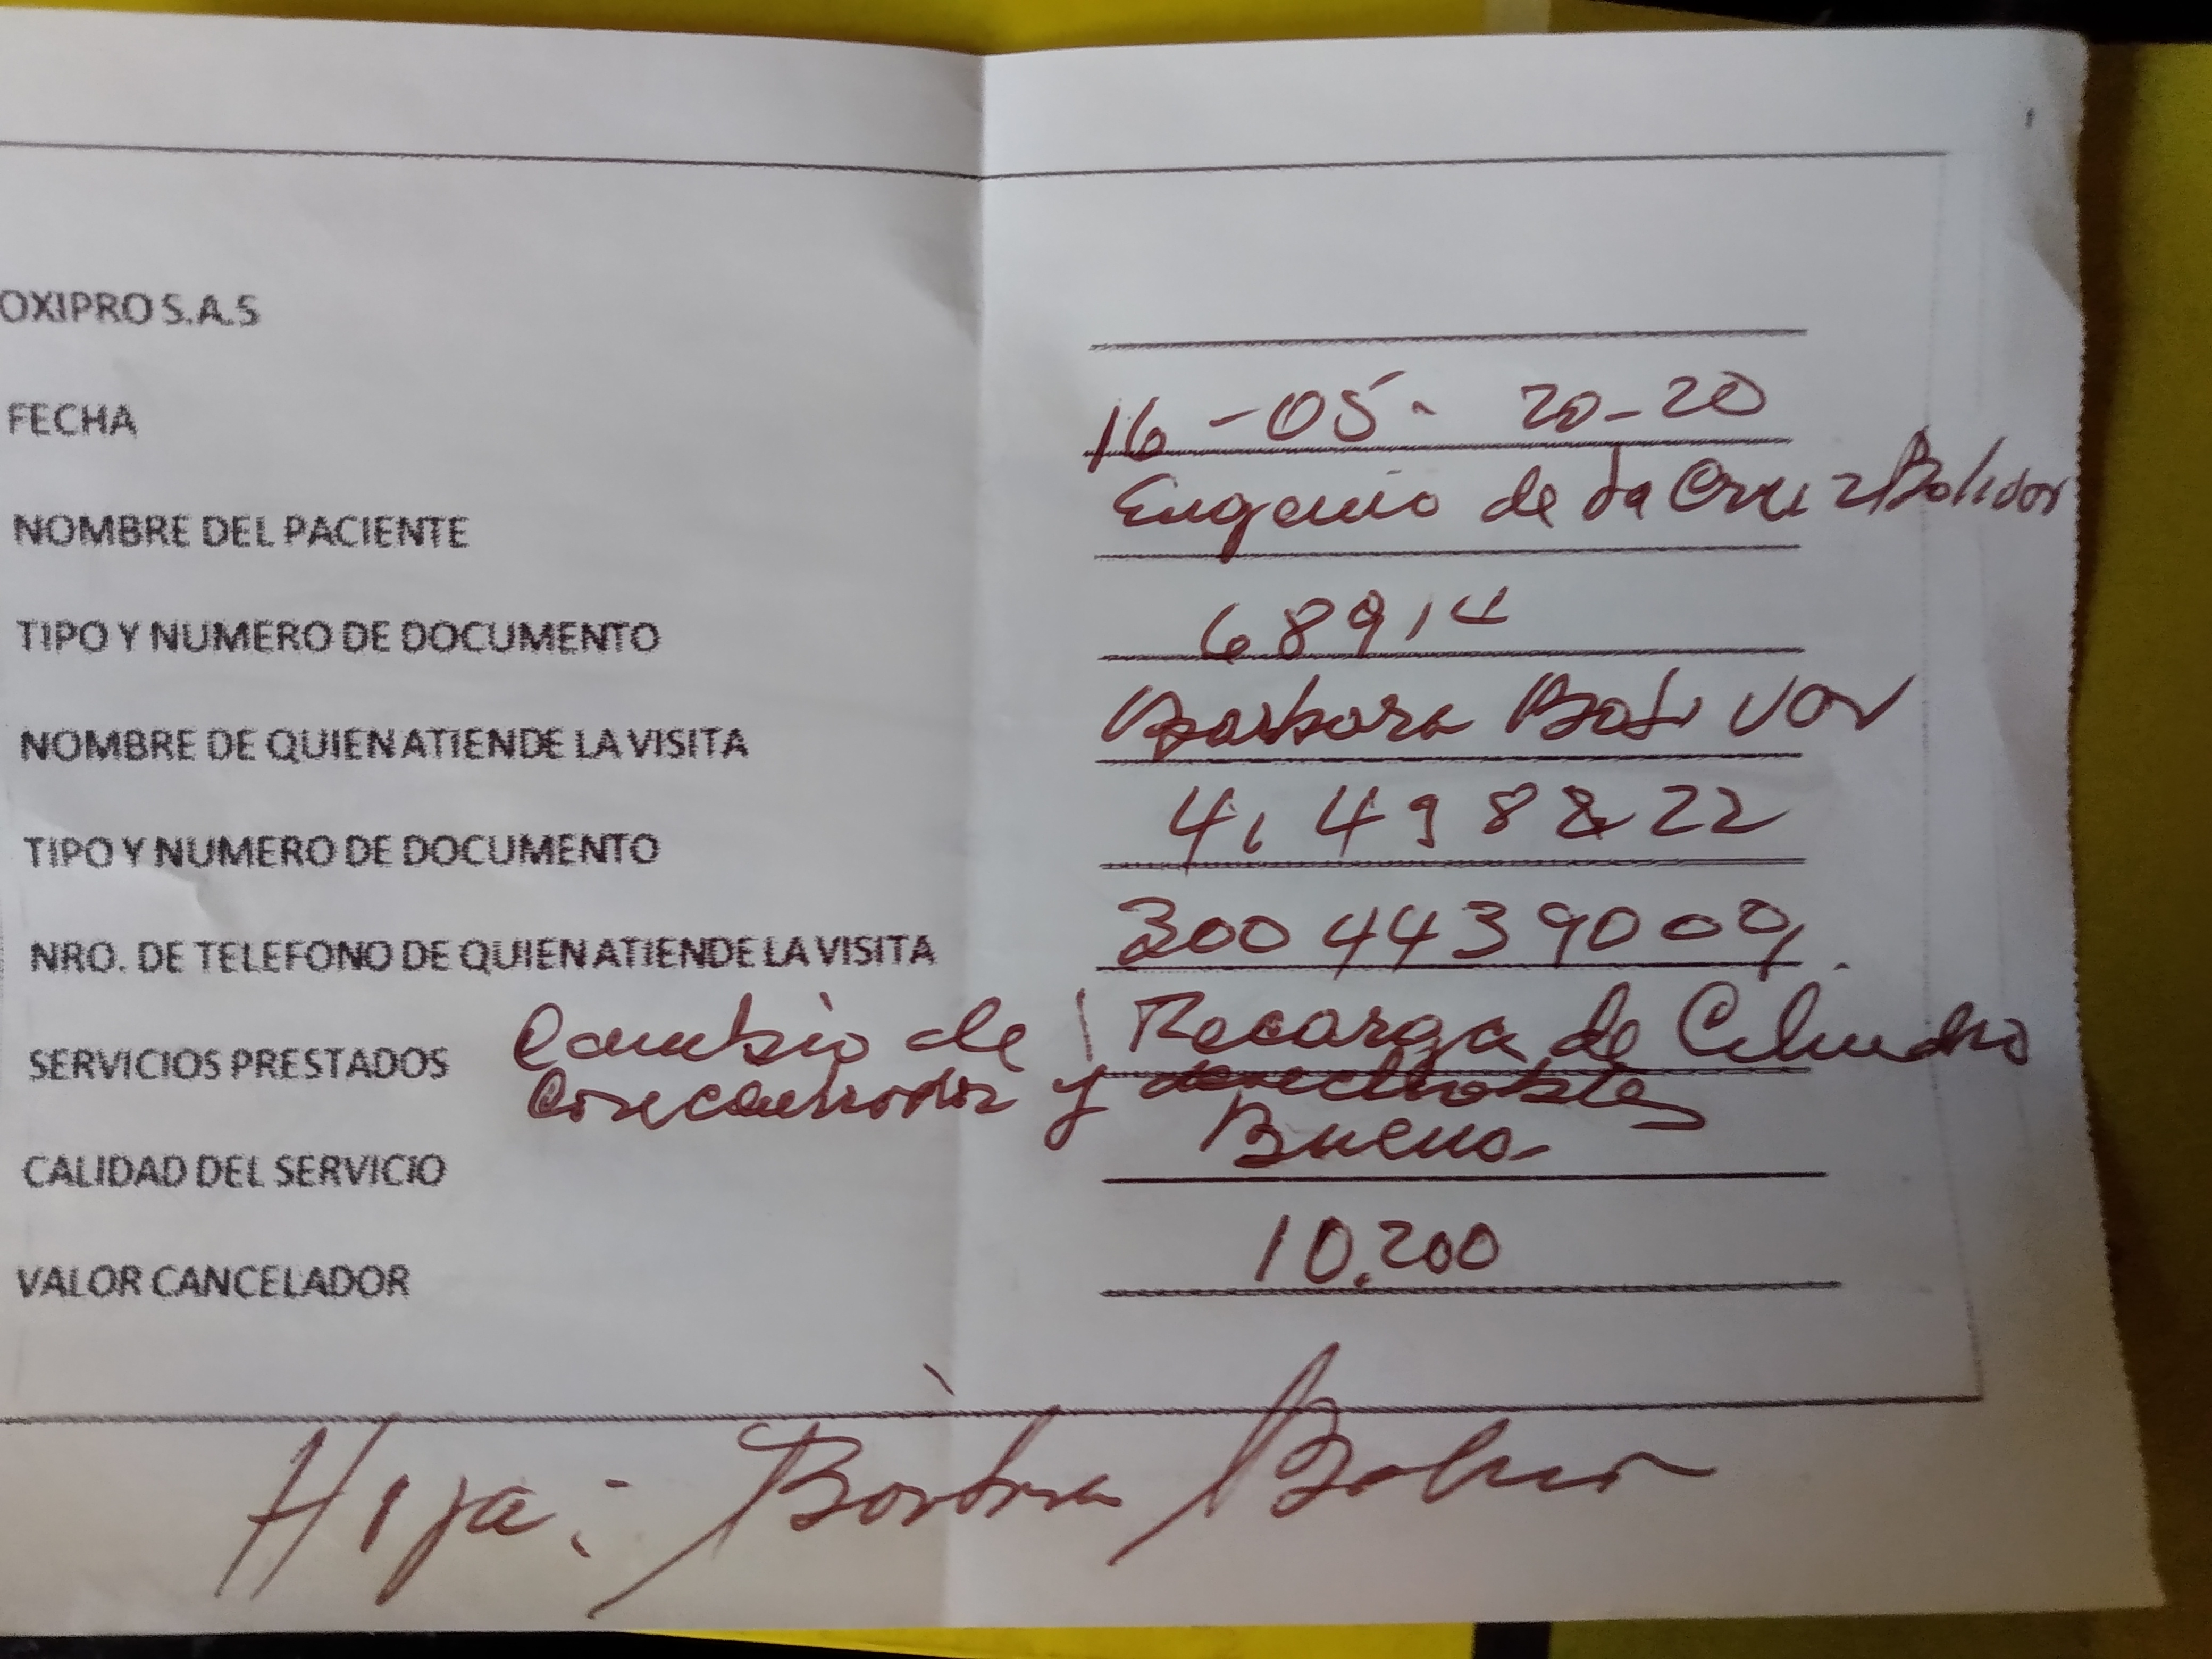 OXIPRO S.A.S
FECHA 16 - 05 - 20-20
NOMBRE DEL PACIENTE Eugenio de la Cruz Bolivar
TIPO Y NUMERO DE DOCUMENTO 68914
NOMBRE DE QUIEN ATIENDE LA VISITA Barbara Bolivar
TIPO Y NUMERO DE DOCUMENTO 41498822
NRO. DE TELEFONO DE QUIEN ATIENDE LA VISITA 3004439009
SERVICIOS PRESTADOS Cambio de | Recarga de Cilindro
Concentrador y desechables
CALIDAD DEL SERVICIO Buena
VALOR CANCELADOR 10.200
Hija: Barbara Bolivar